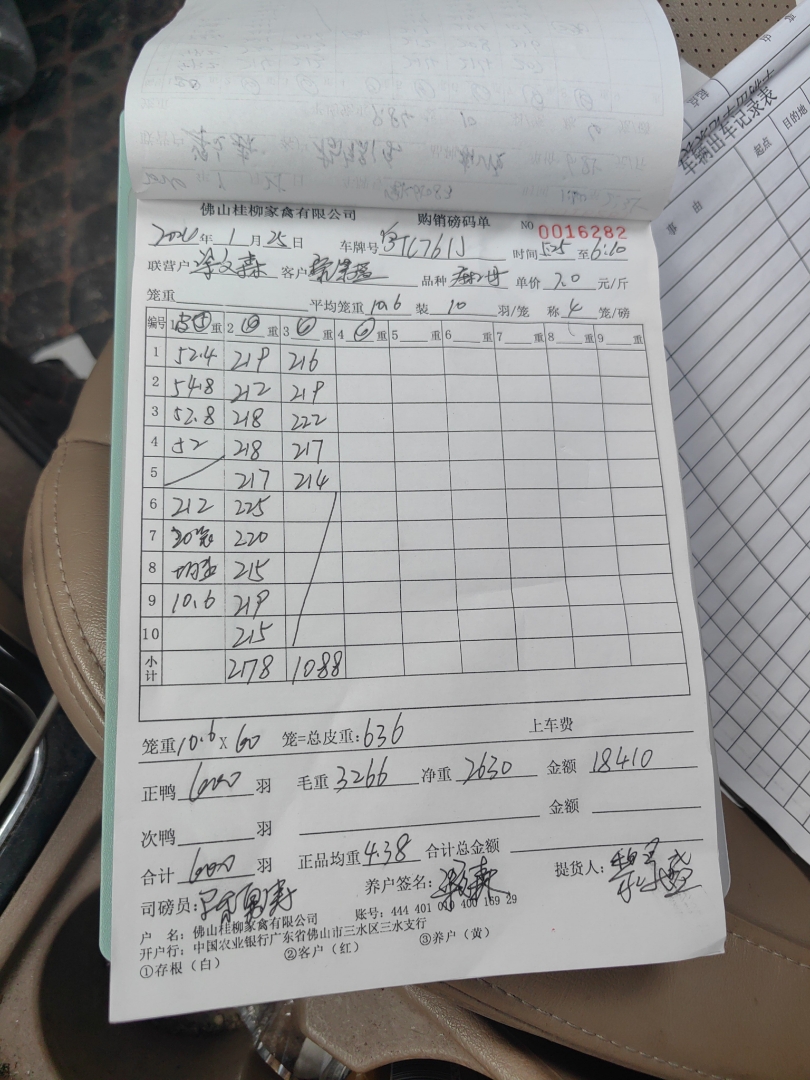 佛山桂柳家禽有限公司 购销磅码单 NO 0016282
年 1 月 25 日 车牌号 时间 5:25 至 6:10
联营户 客户 品种 单价 7.0 元/斤
笼重 平均笼重 10.6 装 10 羽/笼 称 4 笼/磅
编号 重 2 重 3 重 4 重 5 重 6 重 7 重 8 重 9 重
1 52.4 219 216
2 54.8 212 219
3 52.8 218 222
4 52 218 217
5 217 214
6 212 225
7 20笼 220
8 均重 215
9 10.6 219
10 215
小计 2178 1088
笼重 10.6 X 60 笼=总皮重: 636 上车费
正鸭 羽 毛重 3266 净重 2630 金额 18410
次鸭 羽 金额
合计 羽 正品均重 4.38 合计总金额
司磅员: 养户签名: 提货人:
户 名: 佛山桂柳家禽有限公司 账号: 444 401 400 169 29
开户行: 中国农业银行广东省佛山市三水区三水支行
①存根（白） ②客户（红） ③养户（黄）
车辆出车记录表
起点
目的地
事由